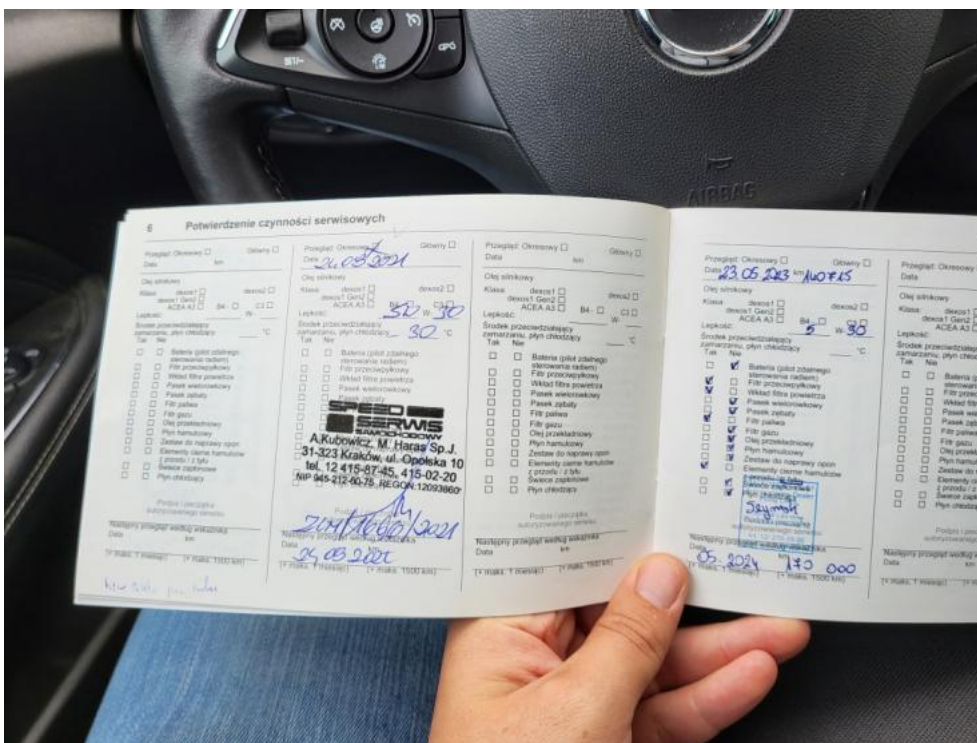 SET/-
AIRBAG
6 Potwierdzenie czynności serwisowych
Przegląd: Okresowy □ Główny □
Data km
Olej silnikowy
Klasa: dexos1 □ dexos2 □
dexos1 Gen2 □
ACEA A3 □ B4 - □ C3 □
Lepkość: W-
Środek przeciwdziałający
zamarzaniu, płyn chłodzący °C
Tak Nie
□ □ Bateria (pilot zdalnego
sterowania radiem)
□ □ Filtr przeciwpyłkowy
□ □ Wkład filtra powietrza
□ □ Pasek wielorowkowy
□ □ Pasek zębaty
□ □ Filtr paliwa
□ □ Filtr gazu
□ □ Olej przekładniowy
□ □ Płyn hamulcowy
□ □ Zestaw do naprawy opon
□ □ Elementy cierne hamulców
z przodu / z tyłu
□ □ Świece zapłonowe
□ □ Płyn chłodzący
Podpis i pieczątka
autoryzowanego serwisu
Następny przegląd według wskaźnika
Data km
(+ maks. 1 miesiąc) (+ maks. 1500 km)
Przegląd: Okresowy Główny □
Data 24.03 2021
Olej silnikowy
Klasa: dexos1 □ dexos2 □
dexos1 Gen2 □
ACEA A3 □ B4 - □ C3 □
Lepkość: 5W W- 30
Środek przeciwdziałający
zamarzaniu, płyn chłodzący - 30 °C
Tak Nie
□ □ Bateria (pilot zdalnego
sterowania radiem)
□ □ Filtr przeciwpyłkowy
□ □ Wkład filtra powietrza
□ □ Pasek wielorowkowy
□ □ Pasek zębaty
SPEED
SERWIS
SAMOCHODOWY
A.Kubowicz, M. Haraś Sp.J.
31-323 Kraków, ul. Opolska 10
tel. 12 415-87-45, 415-02-20
NIP 945-212-60-75, REGON:12093860
□ □ Świece zapłonowe
□ □ Płyn chłodzący
Podpis i pieczątka
autoryzowanego serwisu
/2021
Następny przegląd według wskaźnika
Data km
24.03 2022
(+ maks. 1 miesiąc) (+ maks. 1500 km)
Przegląd: Okresowy □ Główny □
Data km
Olej silnikowy
Klasa: dexos1 □ dexos2 □
dexos1 Gen2 □
ACEA A3 □ B4 - □ C3 □
Lepkość: W-
Środek przeciwdziałający
zamarzaniu, płyn chłodzący °C
Tak Nie
□ □ Bateria (pilot zdalnego
sterowania radiem)
□ □ Filtr przeciwpyłkowy
□ □ Wkład filtra powietrza
□ □ Pasek wielorowkowy
□ □ Pasek zębaty
□ □ Filtr paliwa
□ □ Filtr gazu
□ □ Olej przekładniowy
□ □ Płyn hamulcowy
□ □ Zestaw do naprawy opon
□ □ Elementy cierne hamulców
z przodu / z tyłu
□ □ Świece zapłonowe
□ □ Płyn chłodzący
Podpis i pieczątka
autoryzowanego serwisu
Następny przegląd według wskaźnika
Data km
(+ maks. 1 miesiąc) (+ maks. 1500 km)
Przegląd: Okresowy □ Główny □
Data 23.05 2023 km 140715
Olej silnikowy
Klasa: dexos1 □ dexos2 □
dexos1 Gen2 □
ACEA A3 □ B4 - □ C3 □
Lepkość: 5 W- 30
Środek przeciwdziałający
zamarzaniu, płyn chłodzący °C
Tak Nie
Bateria (pilot zdalnego
sterowania radiem)
Filtr przeciwpyłkowy
Wkład filtra powietrza
Pasek wielorowkowy
Pasek zębaty
Filtr paliwa
Filtr gazu
Olej przekładniowy
Płyn hamulcowy
Zestaw do naprawy opon
Elementy cierne hamulców
z przodu / z tyłu
Świece zapłonowe
Płyn chłodzący
autoryzowanego serwisu
Następny przegląd według wskaźnika
Data km
05. 2024 170 000
(+ maks. 1 miesiąc) (+ maks. 1500 km)
Przegląd: Okresowy □
Data
Olej silnikowy
Klasa: dexos1 □
dexos1 Gen2 □
ACEA A3 □
Lepkość:
Tak Nie